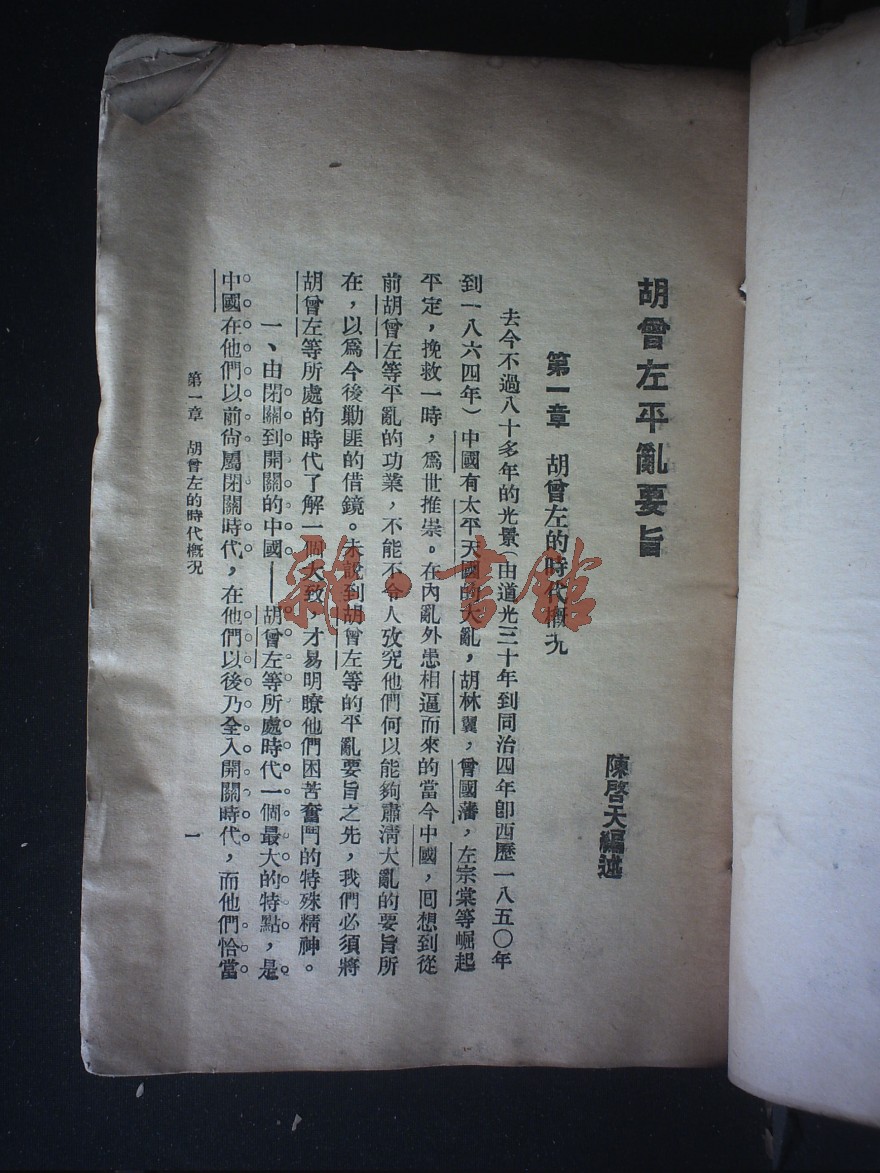 胡曾左平亂要旨
陳啓天編述
第一章 胡曾左的時代概況
去今不過八十多年的光景(由道光三十年到同治四年卽西歷一八五〇年
到一八六四年)中國有太平天國的大亂,胡林翼,曾國藩,左宗棠等崛起
平定,挽救一時,爲世推崇。在內亂外患相逼而來的當今中國,囘想到從
前胡曾左等平亂的功業,不能不令人攷究他們何以能夠肅淸大亂的要旨所
在,以爲今後勦匪的借鏡。未說到胡曾左等的平亂要旨之先,我們必須將
胡曾左等所處的時代了解一個大致,才易明瞭他們困苦奮鬥的特殊精神。
一、由閉關到開關的中國——胡曾左等所處時代一個最大的特點,是
中國在他們以前尙屬閉關時代,在他們以後乃全入開關時代,而他們恰當
第一章 胡曾左的時代概況
一
雜·書館